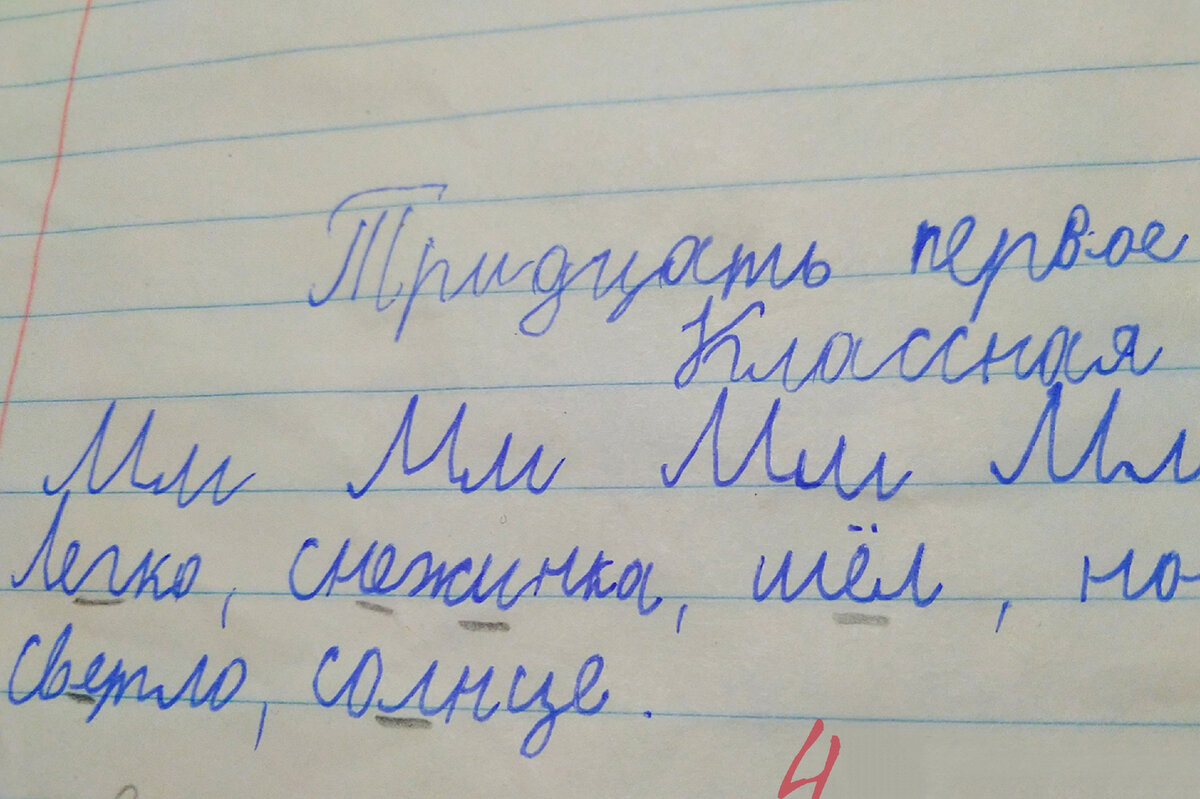 Тридцать первое
Классная
Мм Мм Мм Мм
Легко, снежинка, шёл, но-
светло, солнце.
4